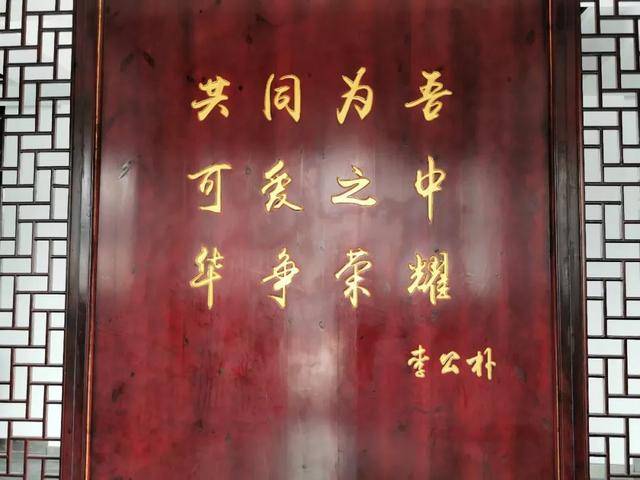 共同为吾
可爱之中
华争荣耀
李公朴